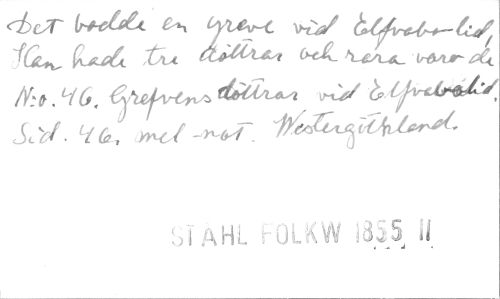 Det bodde en greve vid Elfvabo-lid,
Han hade tre döttrar och rara voro de
N:o. 46. Grefvens döttrar vid Elfvabolid.
Sid. 46, mel-not. Westergöthland.
STAHL FOLKW 1855 II